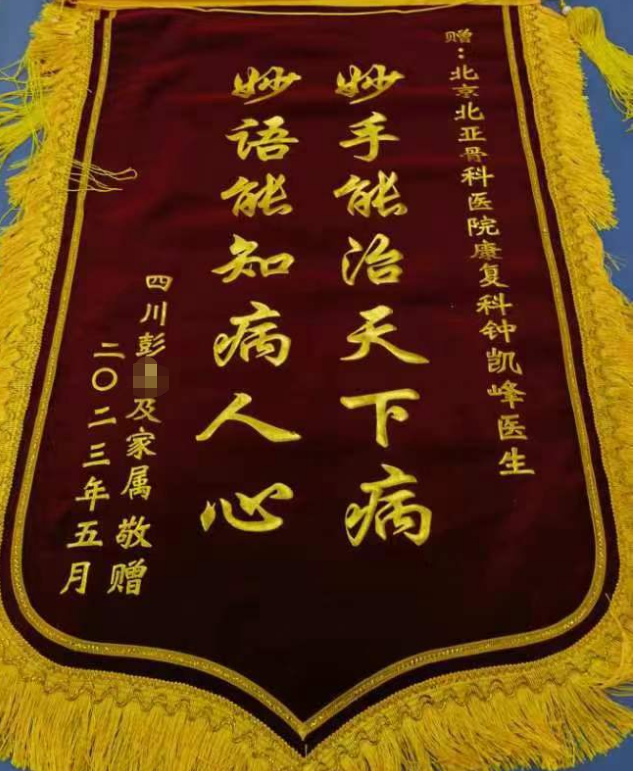 赠：北京北亚骨科医院康复科钟凯峰医生
妙手能治天下病
妙语能知病人心
四川彭 及家属 敬赠
二〇二三年五月